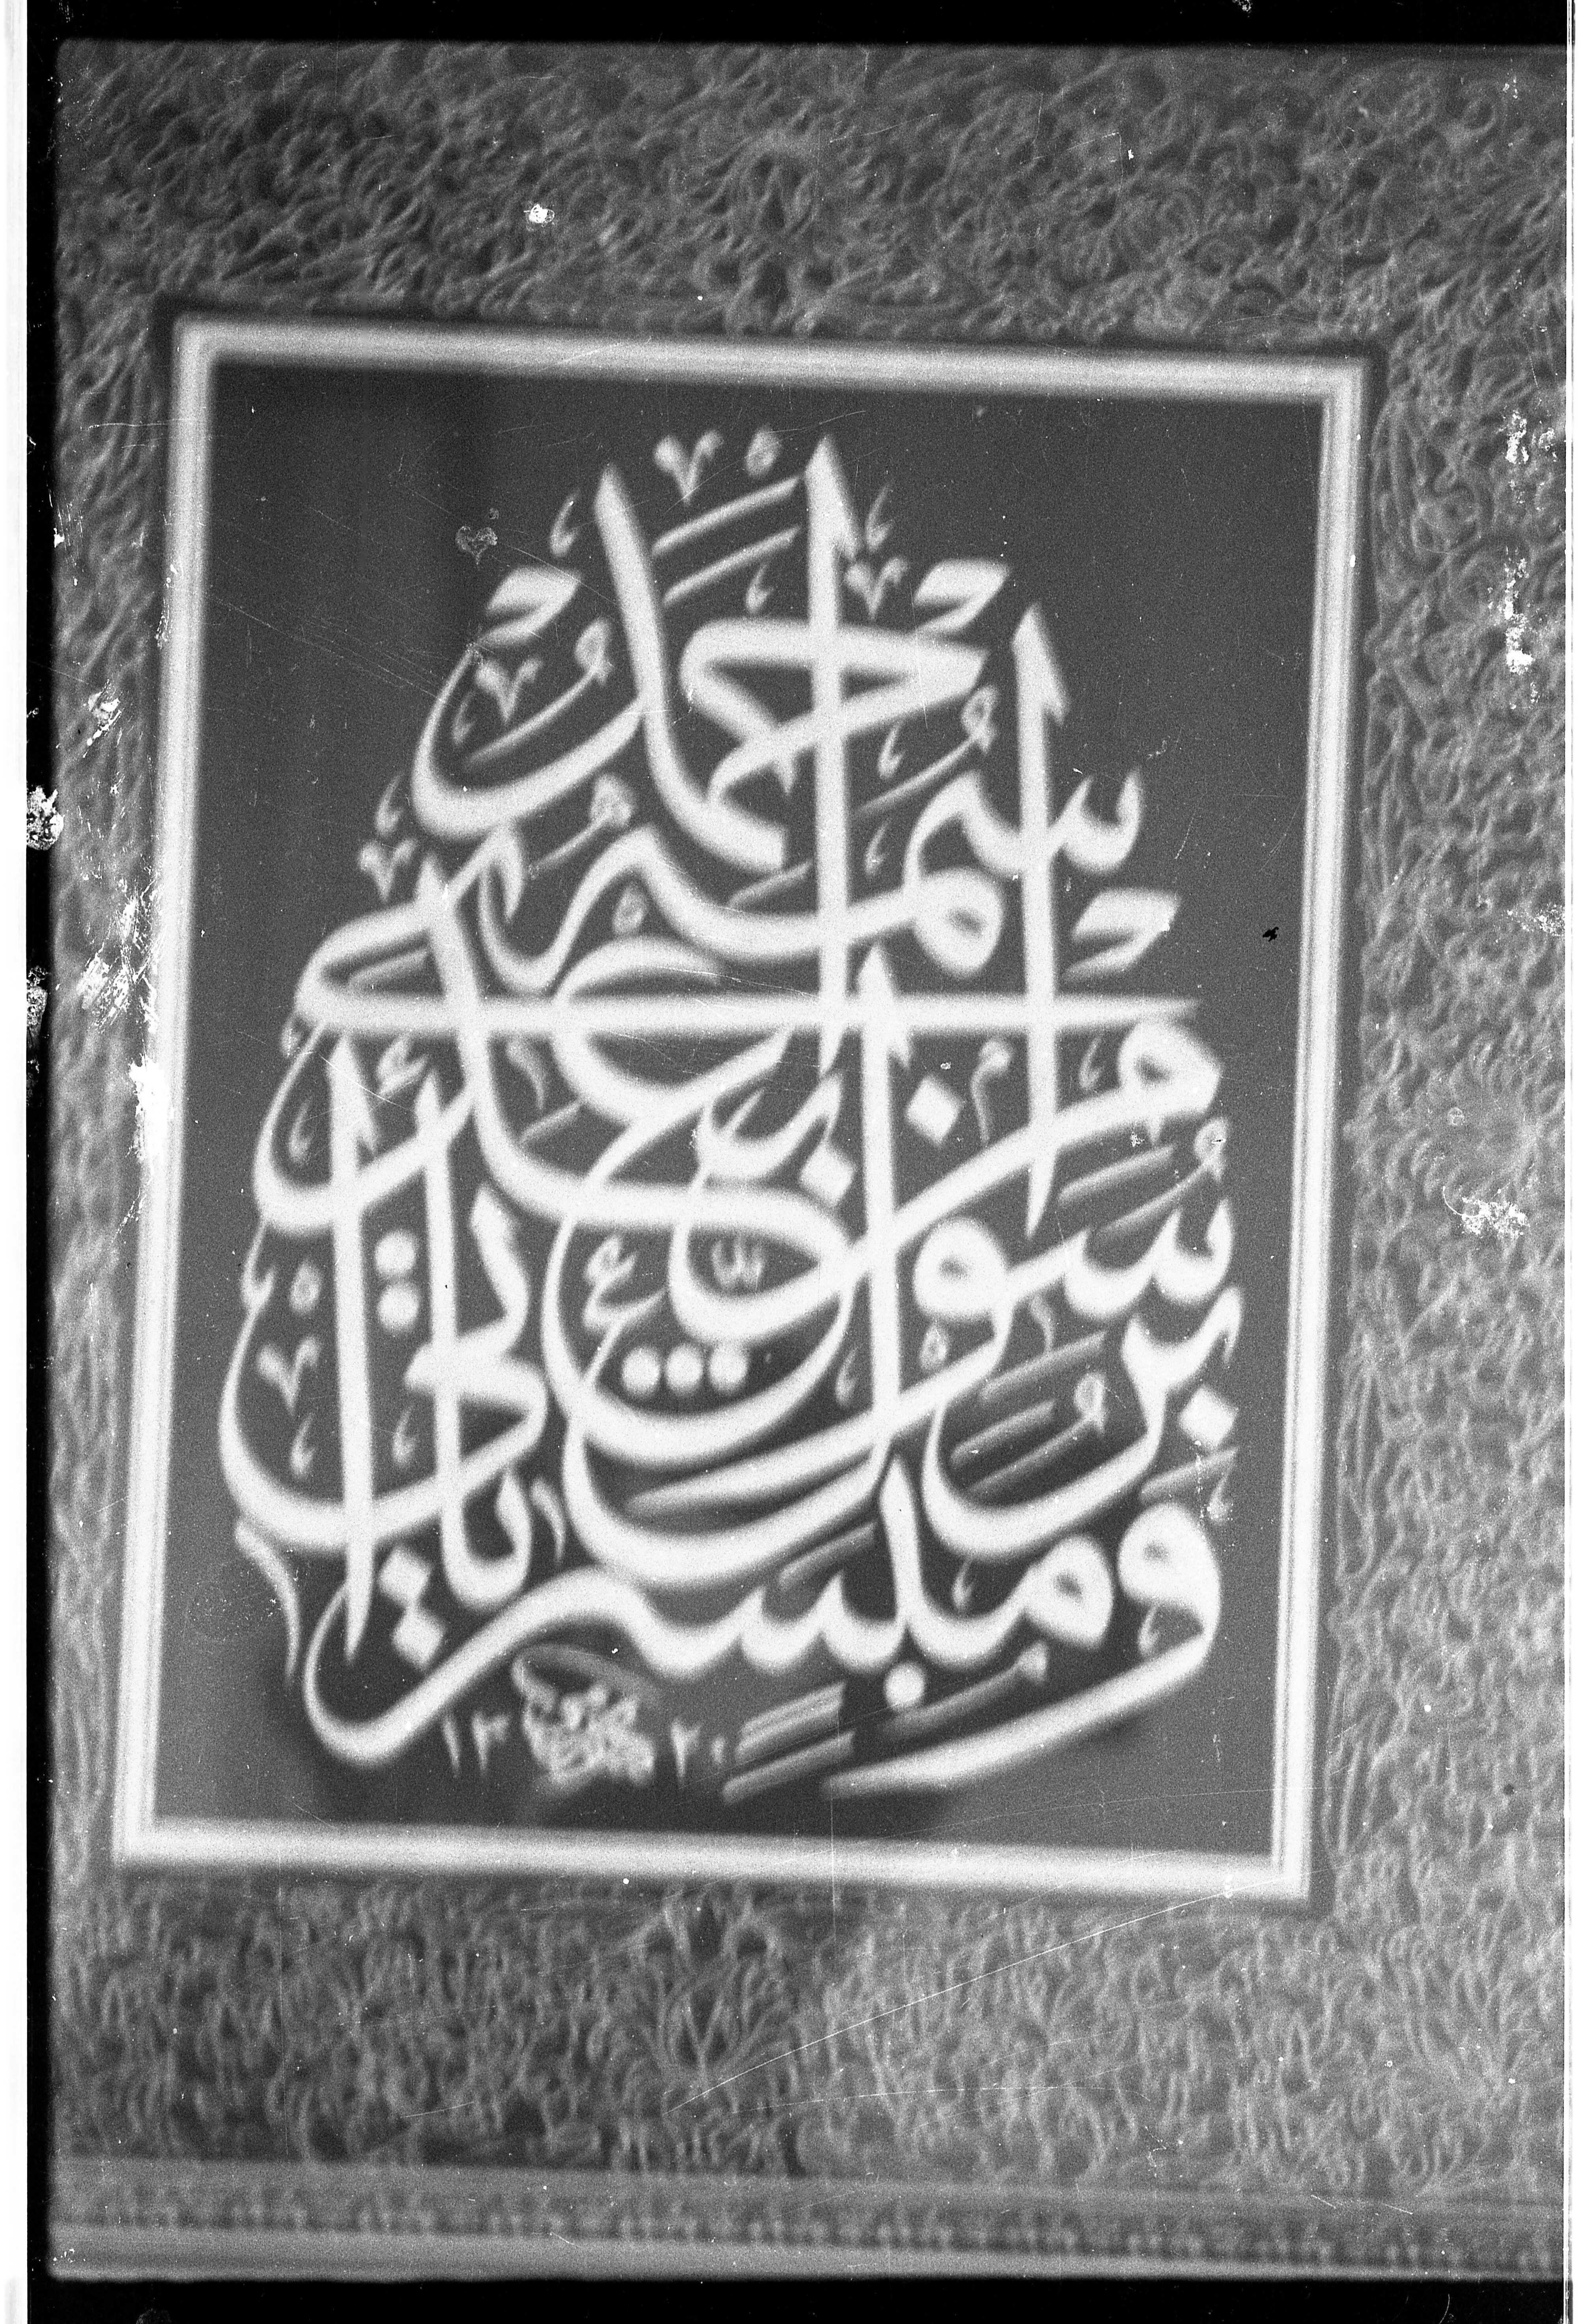 ومبشرا برسول يأتي من بعدي اسمه أحمد
١٣٢٠